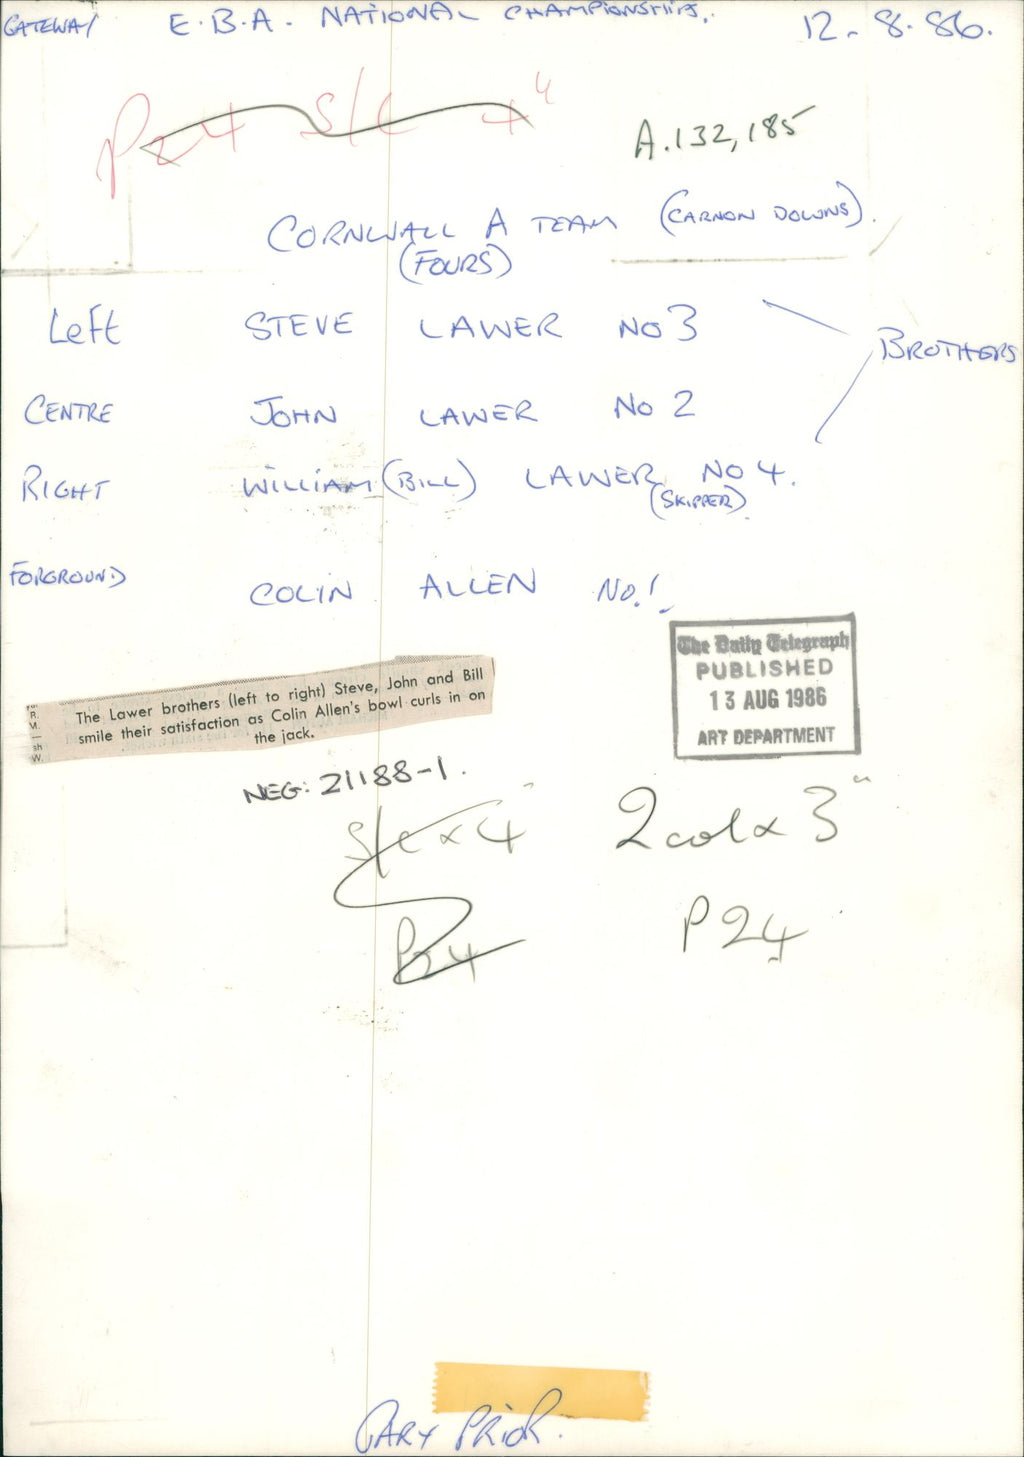 GATEWAY E.B.A. NATIONAL CHAMPIONSHIPS. 12.8.86.
P24 S/C 4"
A.132,185
CORNWALL A TEAM (CARNON DOWNS).
(FOURS)
Left STEVE LAWER NO 3
BROTHERS
CENTRE JOHN LAWER NO 2
RIGHT WILLIAM (BILL) LAWER NO 4.
(SKIPPER)
FORGROUND COLIN ALLEN NO.1.
The Daily Telegraph
PUBLISHED
13 AUG 1986
ART DEPARTMENT
The Lawer brothers (left to right) Steve, John and Bill
smile their satisfaction as Colin Allen's bowl curls in on
the jack.
R.
M.
—
sh
W.
NEG: 21188-1.
S/C x 4"
2 col x 3"
P24
P24
GARY PRIOR.